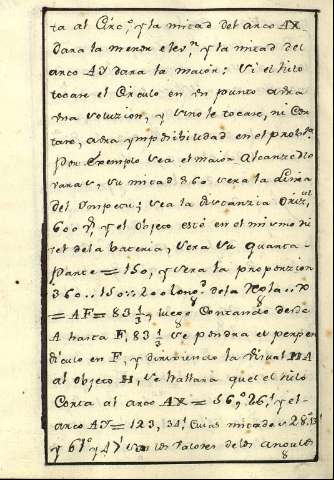 ta al Circ.º y la mitad del arco AX
dara la menor elev.n y la mitad del
arco AY dara la maior: Si el hilo
tocase el Circulo en un punto avra
una soluzion, y si no le tocare, ni Cor
tare, avra ymposibilidad en el probl.a
Por Exemplo sea el maior Alcanze
varas, su mitad 360 sera la
del sea la distanzia Oriz.tl
600 y el objeto esté en el mismo ni
vel de la bateria, sera su quarta
parte = 150, y sera la proporzion
360..150::200 de la Regla..
= AF = 83 1/3, luego Contando desde
A hasta F, 83 1/3 se pondra el perpen
diculo en F, y dirixiendo la visual HA
al objeto H, se hallara que el hilo
Corta al arco AX = 56,º 26,' y el
arco AY = 123, 34,' Cuias mitades 28º 13'
y 61º y 47' son los valores de los angulos